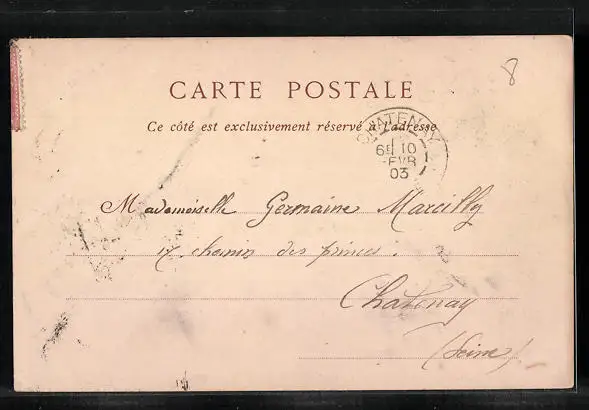 8
CARTE POSTALE
Ce côté est exclusivement réservé à l'adresse
CHATENAY
6E 10
FEVR
03
Mademoiselle Germaine Marcilly
17 chemin des princes.
Chatenay
(Seine)